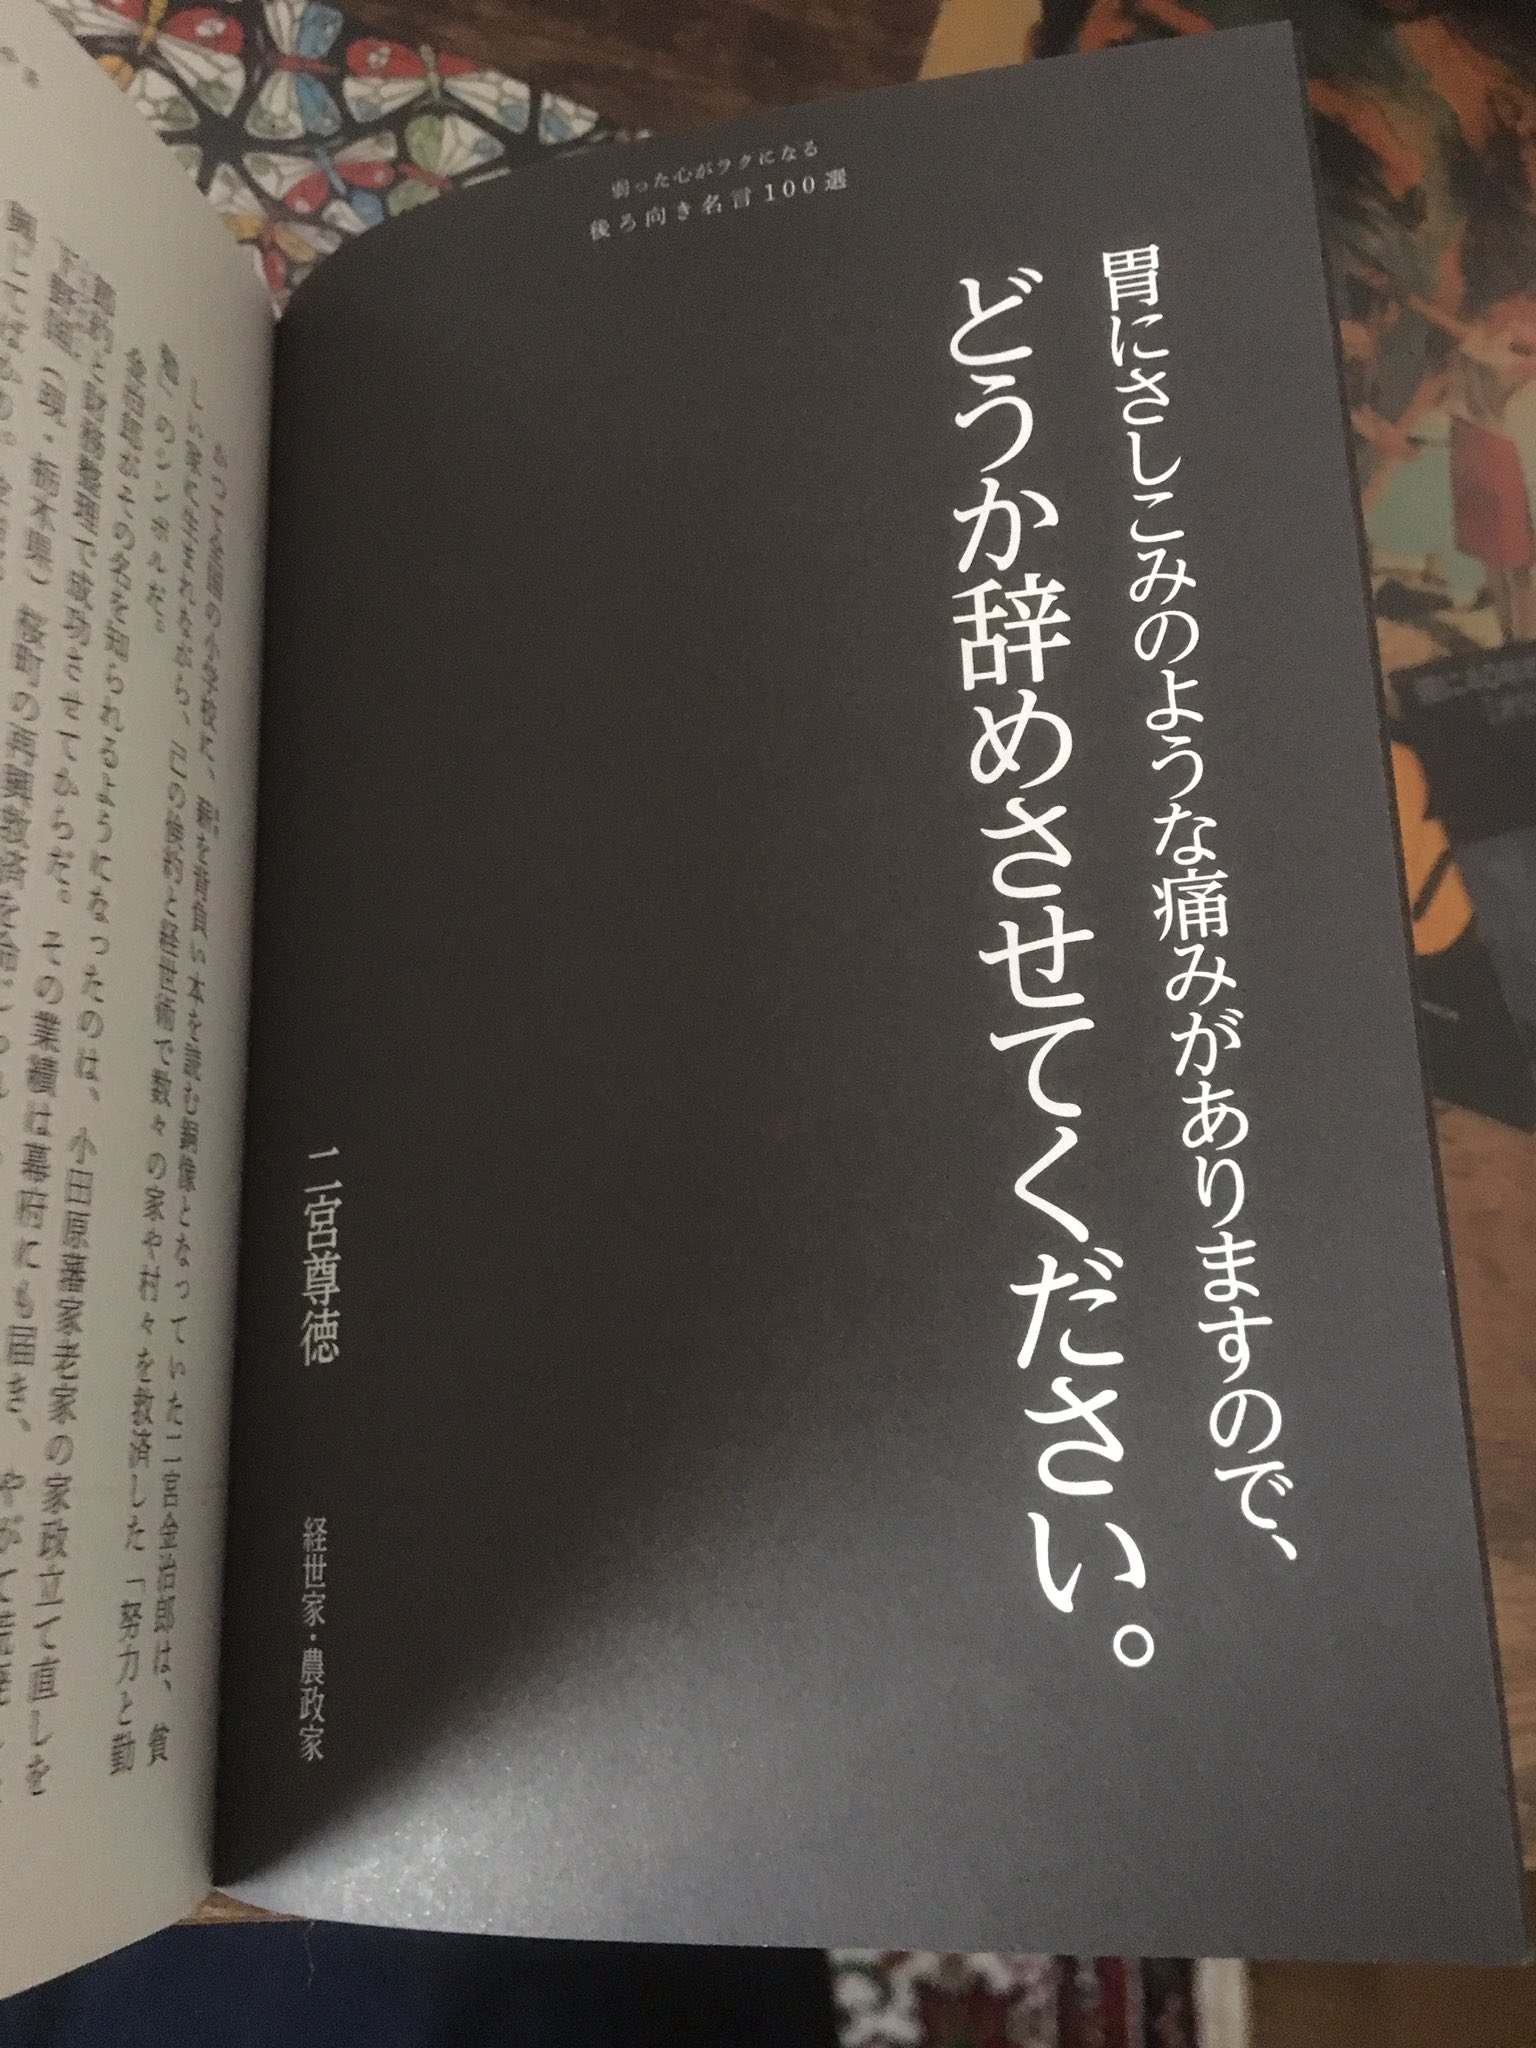 弱った心がラクになる
後ろ向き名言100選
胃にさしこみのような痛みがありますので、
どうか辞めさせてください。
二宮尊徳
経世家・農政家
かつて全国の小学校に、薪を背負い本を読む銅像となっていた二宮金治郎は、貧
しい家に生まれながら、己の倹約と経世術で数々の家や村々を救済した「努力と勤
勉」のシンボルだ。
金治郎がその名を知られるようになったのは、小田原藩家老家の家政立て直しを
倹約と財務整理で成功させてからだ。その業績は幕府にも届き、やがて荒廃した
下野国（現・栃木県）桜町の再興救済を命じられ